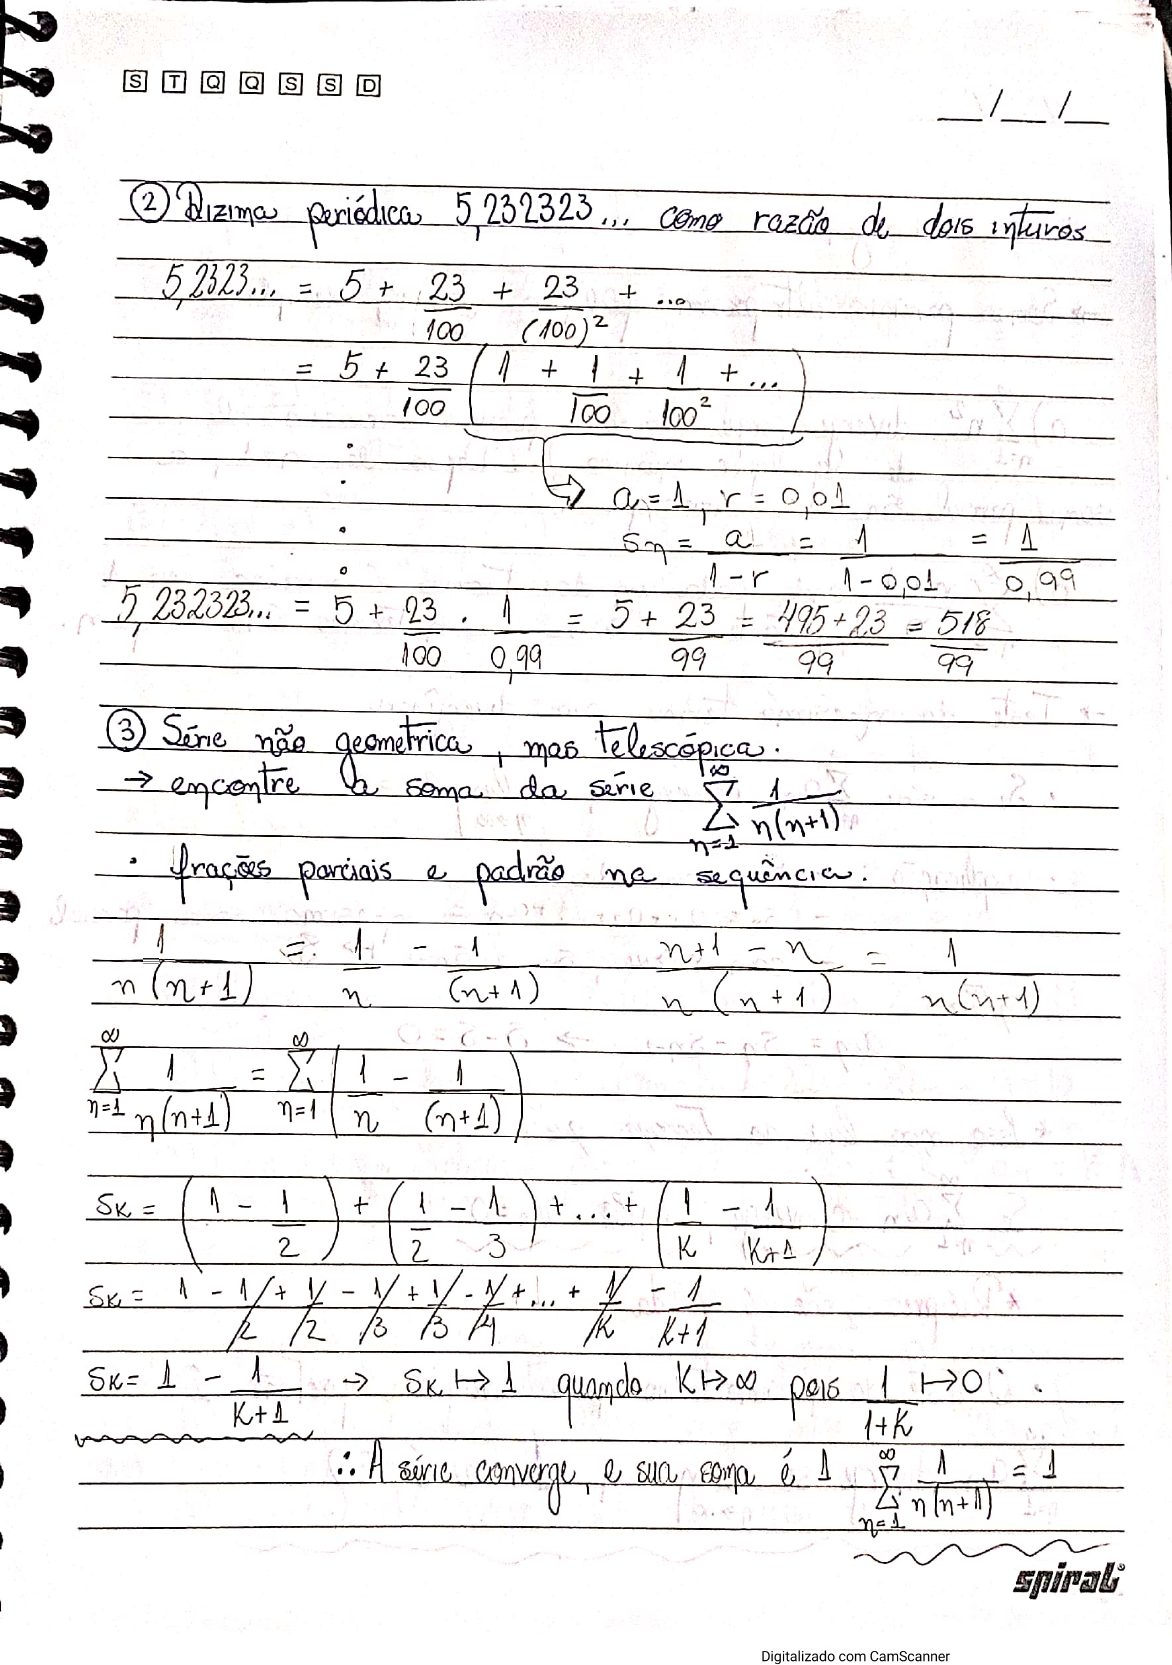 S T Q Q S S D
__/__/__
② Dizima periódica 5,232323... como razão de dois inturos
5,2323... = 5 + 23/100 + 23/(100)² + ...
= 5 + 23/100 (1 + 1/100 + 1/100² + ...)
→ a = 1, r = 0,01
Sn = a/(1-r) = 1/(1-0,01) = 1/0,99
5,232323... = 5 + 23/100 . 1/0,99 = 5 + 23/99 = (495+23)/99 = 518/99
③ Série não geometrica, mas telescópica.
→ encontre a soma da série ∑_{n=1}^{∞} 1/(n(n+1))
· frações parciais e padrão na sequência.
1/(n(n+1)) = 1/n - 1/(n+1)    (n+1-n)/(n(n+1)) = 1/(n(n+1))
∑_{n=1}^{∞} 1/(n(n+1)) = ∑_{n=1}^{∞} (1/n - 1/(n+1))
SK = (1 - 1/2) + (1/2 - 1/3) + ... + (1/K - 1/(K+1))
SK = 1 - 1/2 + 1/2 - 1/3 + 1/3 - 1/4 + ... + 1/K - 1/(K+1)
SK = 1 - 1/(K+1) → SK ↦ 1 quando K ↦ ∞ pois 1/(1+K) ↦ 0.
∴ A série converge, e sua soma é 1 ∑_{n=1}^{∞} 1/(n(n+1)) = 1
spiral®
Digitalizado com CamScanner